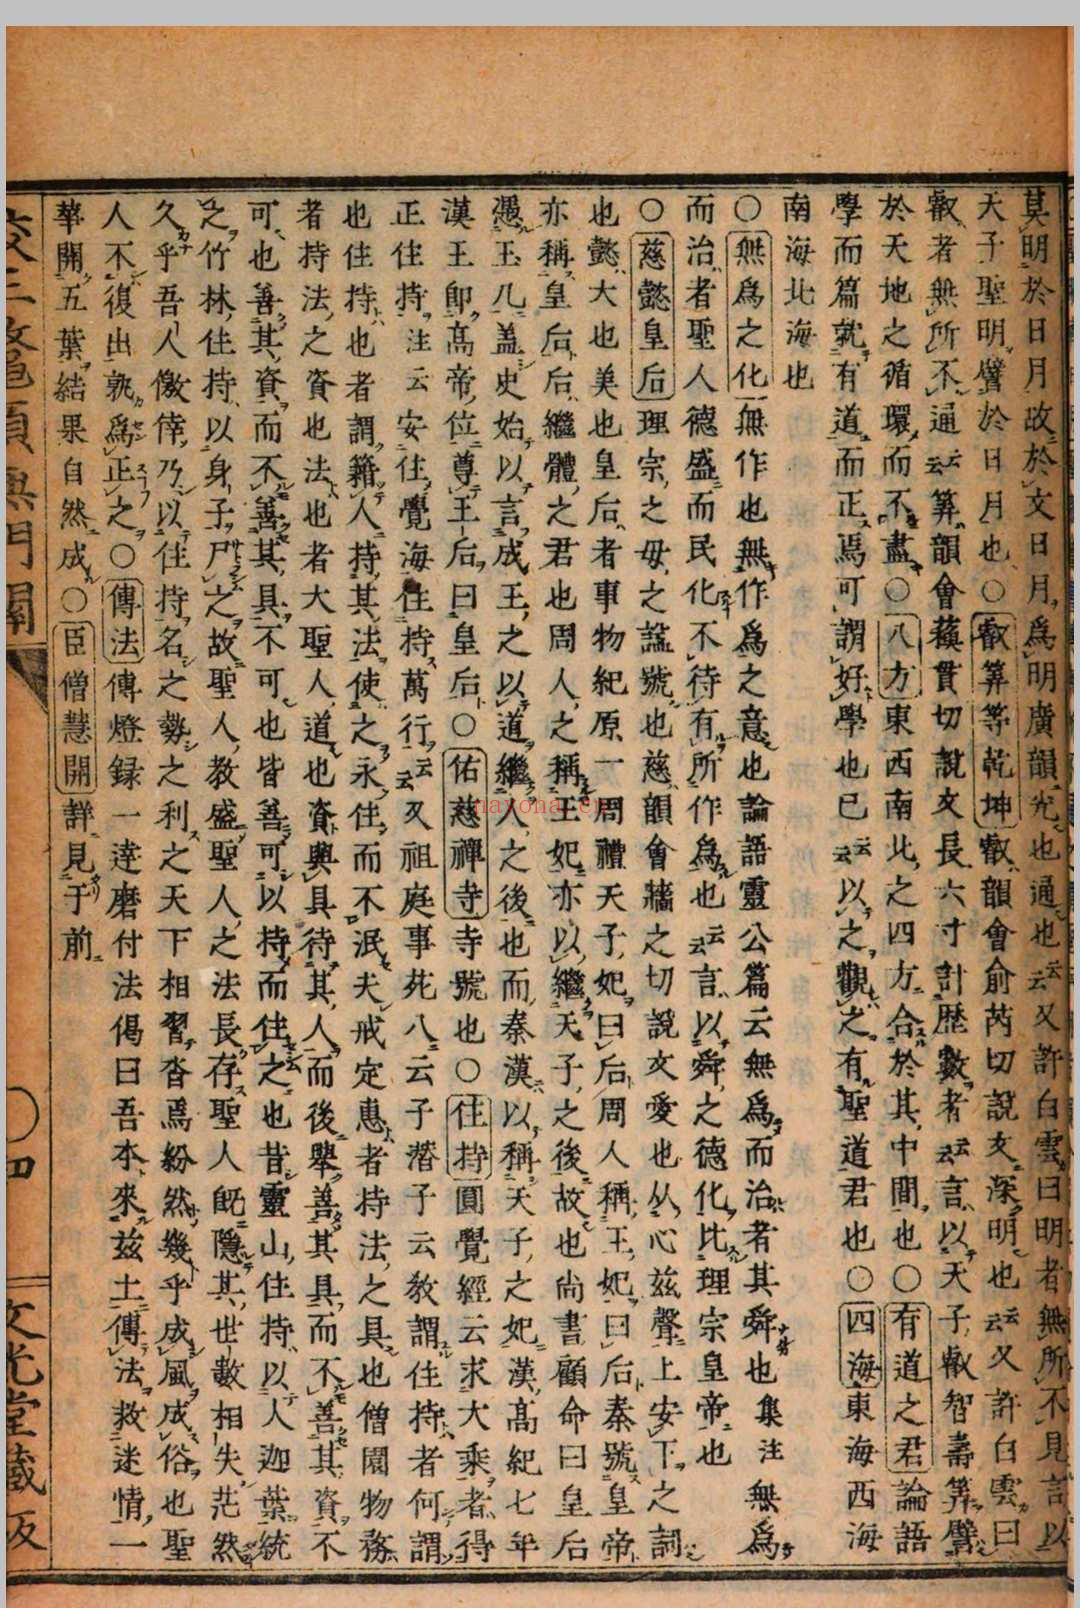 莫明於日月故於文日月爲明廣韻光也通也云云又許白雲曰明者無所不見言以
天子聖明譬於日月也○叡筭等乾坤叡韻會俞芮切說文深明也云云又許白雲曰
叡者無所不通云云筭韻會蘓貫切說文長六寸計歷數者云云言以天子叡智壽筭譬
於天地之循環而不盡○八方東西南北之四方合於其中間也○有道之君論語
學而篇就有道而正焉可謂好學也已云云以之觀之有聖道君也○四海東海西海
南海北海也
○無爲之化無作也無作爲之意也論語靈公篇云無爲而治者其舜也集註無爲
而治者聖人德盛而民化不待有所作爲也云云言以舜之德化比理宗皇帝也
○慈懿皇后理宗之母之謚號也慈韻會牆之切說文愛也从心茲聲上安下之詞
也懿大也美也皇后者事物紀原一周禮天子妃曰后周人稱王妃曰后秦號皇帝
亦稱皇后后繼體之君也周人之稱王妃亦以繼天子之後故也尚書顧命曰皇后
憑玉几蓋史始以言成王之以道繼人之後也而秦漢以稱天子之妃漢高紀七年
漢王即高帝位尊王后曰皇后○佑慈禪寺寺號也○住持圓覺經云求大乘者得
正住持注云安住覺海住持萬行云云又祖庭事苑八云子潛子云教謂住持者何謂
也住持也者謂籍人持其法使之永住而不泯夫戒定惠者持法之具也僧園物務
者持法之資也法也者大聖人道也資與具待其人而後舉善其具而不善其資不
可也善其資而不善其具不可也皆善可以持而住之也昔靈山住持以人迦葉統
之竹林住持以身子尸之故聖人教盛聖人之法長存聖人旣隱其世數相失茫然
久乎吾人儌倖乃以住持名之勢之利之天下相習沓焉紛然幾乎成風成俗也聖
人不復出孰爲正之○傳法傳燈録一達磨付法偈曰吾本來茲土傳法救迷情一
華開五葉結果自然成○臣僧慧開詳見于前
四
文光堂藏版
nayona.cn